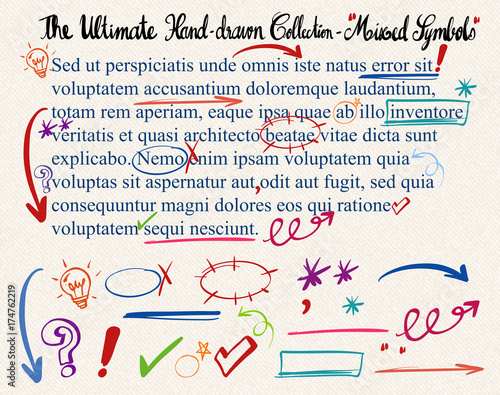 The Ultimate Hand-drawn Collection - "Mixed Symbols"
Sed ut perspiciatis unde omnis iste natus error sit!
voluptatem accusantium doloremque laudantium,
totam rem aperiam, eaque ipsa quae ab illo inventore
veritatis et quasi architecto beatae vitae dicta sunt
explicabo. Nemo enim ipsam voluptatem quia
voluptas sit aspernatur aut, odit aut fugit, sed quia
consequuntur magni dolores eos qui ratione
voluptatem sequi nesciunt.
Adobe Stock | #174762219